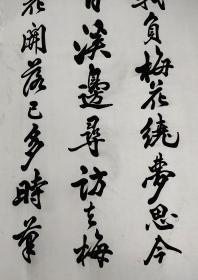 負梅花繞夢思今
溪邊尋訪玄梅
開落已多時